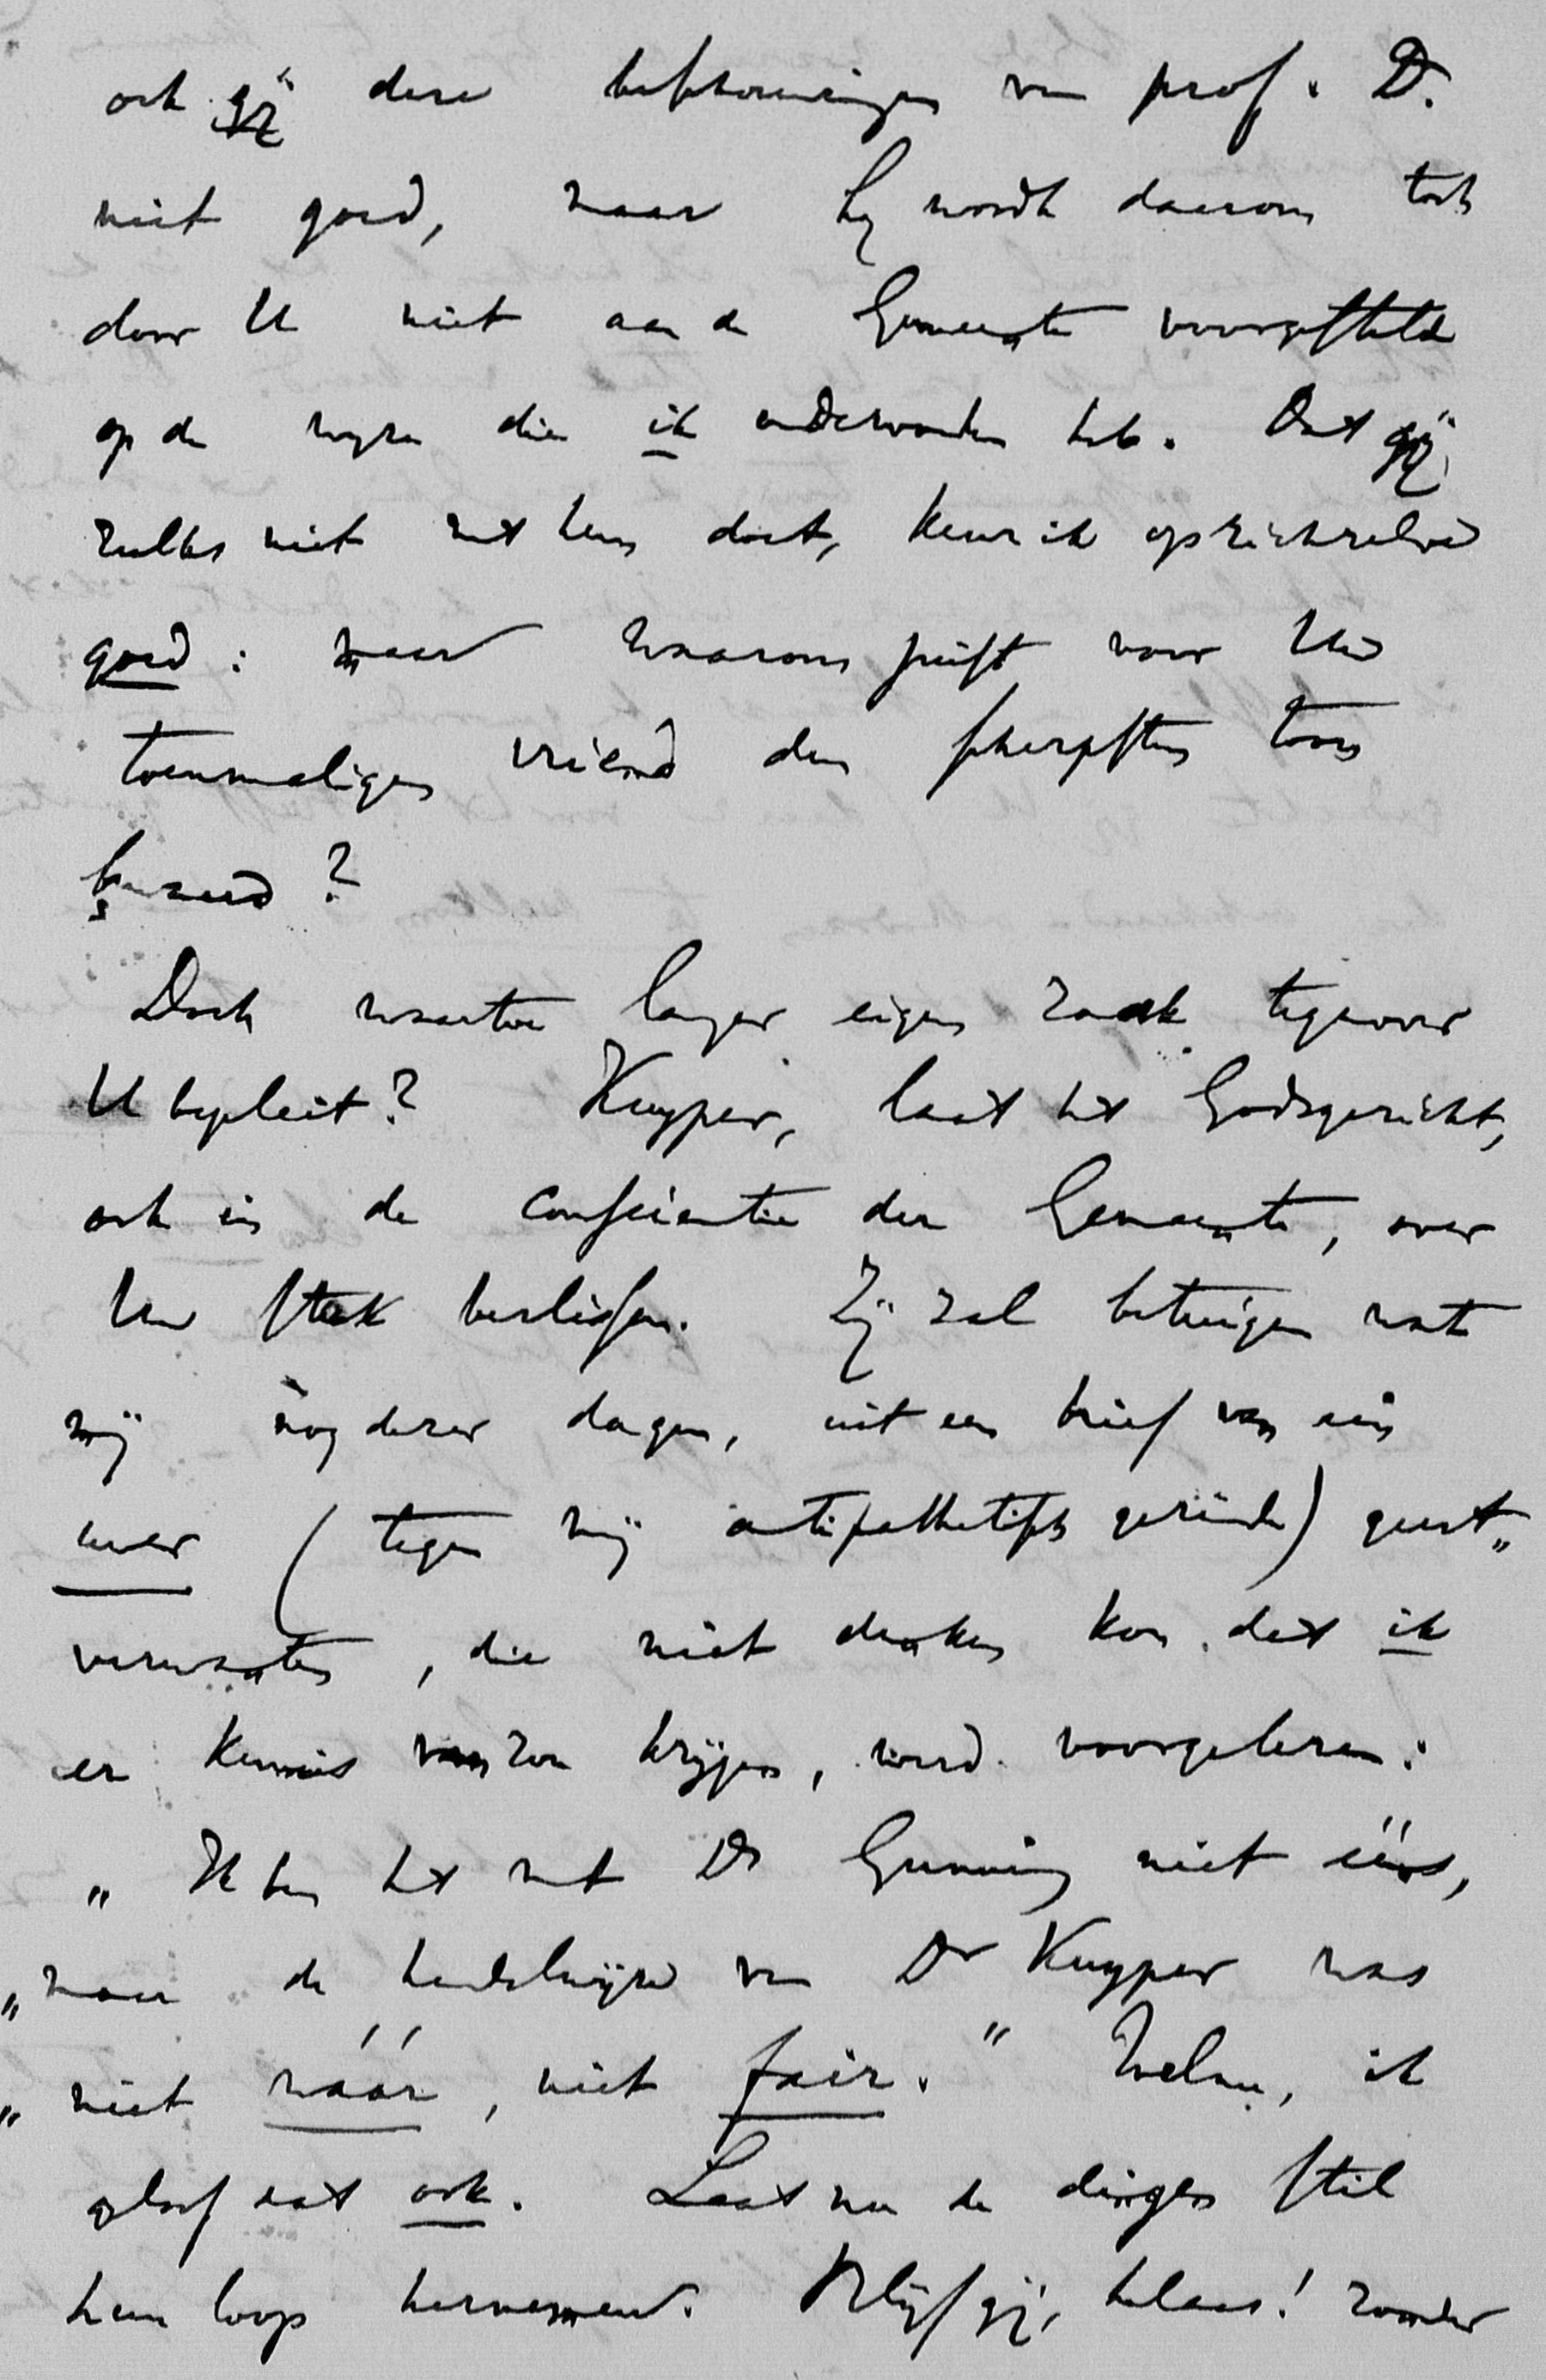 ook gij deze beschouwingen van prof. D.
niet goed, maar hij wordt daarom toch
door U niet aan de Gemeente voorgesteld
op de wijze die ik ondervonden heb. Dat gij
zulks niet met hem doet, keur ik op zichzelve
goed: maar waarom juist voor Uw
toenmaligen vriend den scherpsten toon
bewaard?
Doch waartoe langer eigen zaak tegenover
U bepleit? Kuyper, laat het Godsgericht,
ook in de conscientie der Gemeente, over
Uw stuk beslissen. Zij zal betuigen wat
mij nog dezer dagen, uit een brief van een
uwer (tegen mij antipathetisch gezinde) geest„
verwanten, die niet denken kon dat ik
er kennis van zou krijgen, werd voorgelezen:
„Ik ben het met Dr Gunning niet ééns,
„maar de handelwijze van Dr Kuyper was
„niet wáár, niet fair.” Welnu, ik
geloof dat ook. Laat nu de dingen stil
hun loop hernemen. Blijf gij, helaas! zonder